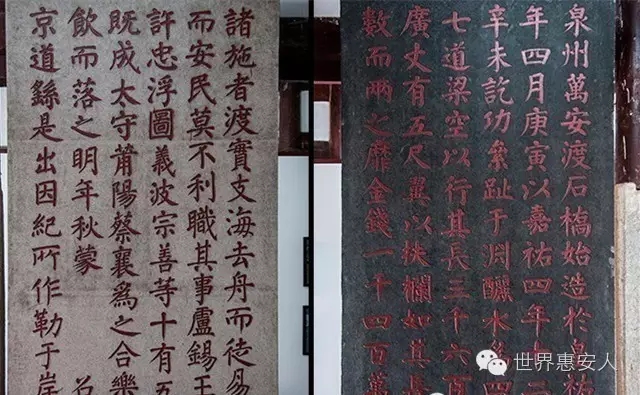 泉州萬安渡石橋始造於皇祐
年四月庚寅以嘉祐四年十二
辛未訖功絫趾于淵釃水爲四
七道梁空以行其長三千六百
廣丈有五尺翼以扶欄如其長
數而兩之靡金錢一千四百萬
諸施者渡實支海去舟而徙易
而安民莫不利職其事盧錫王
許忠浮圖義波宗善等十有五
既成太守莆陽蔡襄爲之合樂
飲而落之明年秋蒙 召
京道繇是出因紀所作勒于岸
世界惠安人